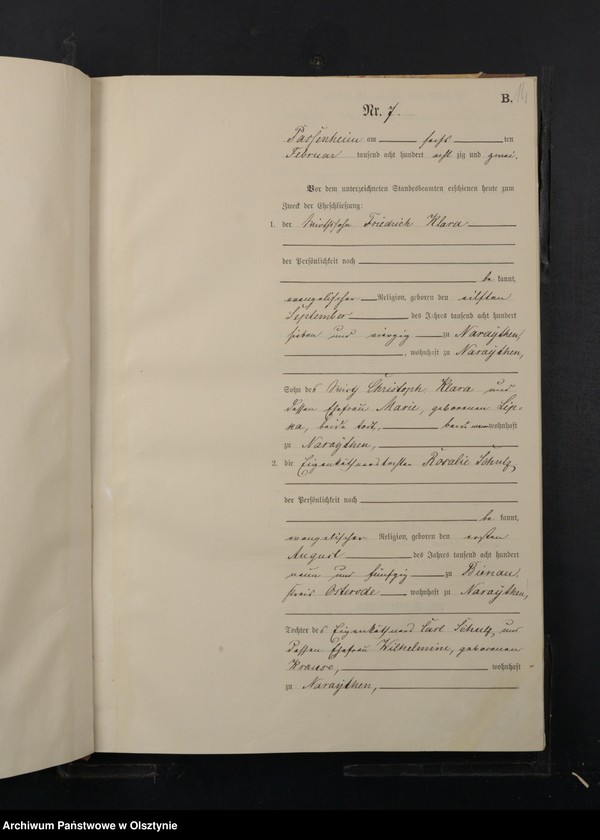 B.
14
Nr. 7.
Passenheim am sechs ten
Februar tausend acht hundert acht zig und zwei.
Vor dem unterzeichneten Standesbeamten erschienen heute zum
Zweck der Eheschließung:
1. der Wirthssohn Friedrich Klara
der Persönlichkeit nach
be kannt,
evangelischer Religion, geboren den eilften
September des Jahres tausend acht hundert
sieben und vierzig zu Naraÿthen,
, wohnhaft zu Naraÿthen,
Sohn des Wirth Christoph Klara und
dessen Ehefrau Marie, geborenen Lip-
ka, beide todt, wohnhaft
zu Naraÿthen,
2. die Eigenkäthnerstochter Rosalie Schulz,
der Persönlichkeit nach
be kannt,
evangelischer Religion, geboren den ersten
August des Jahres tausend acht hundert
neun und fünfzig zu Bienau,
Kreis Osterode wohnhaft zu Naraÿthen,
Tochter des Eigenkäthners Carl Schulz und
dessen Ehefrau Wilhelmine, geborenen
Krause, wohnhaft
zu Naraÿthen,
Archiwum Państwowe w Olsztynie